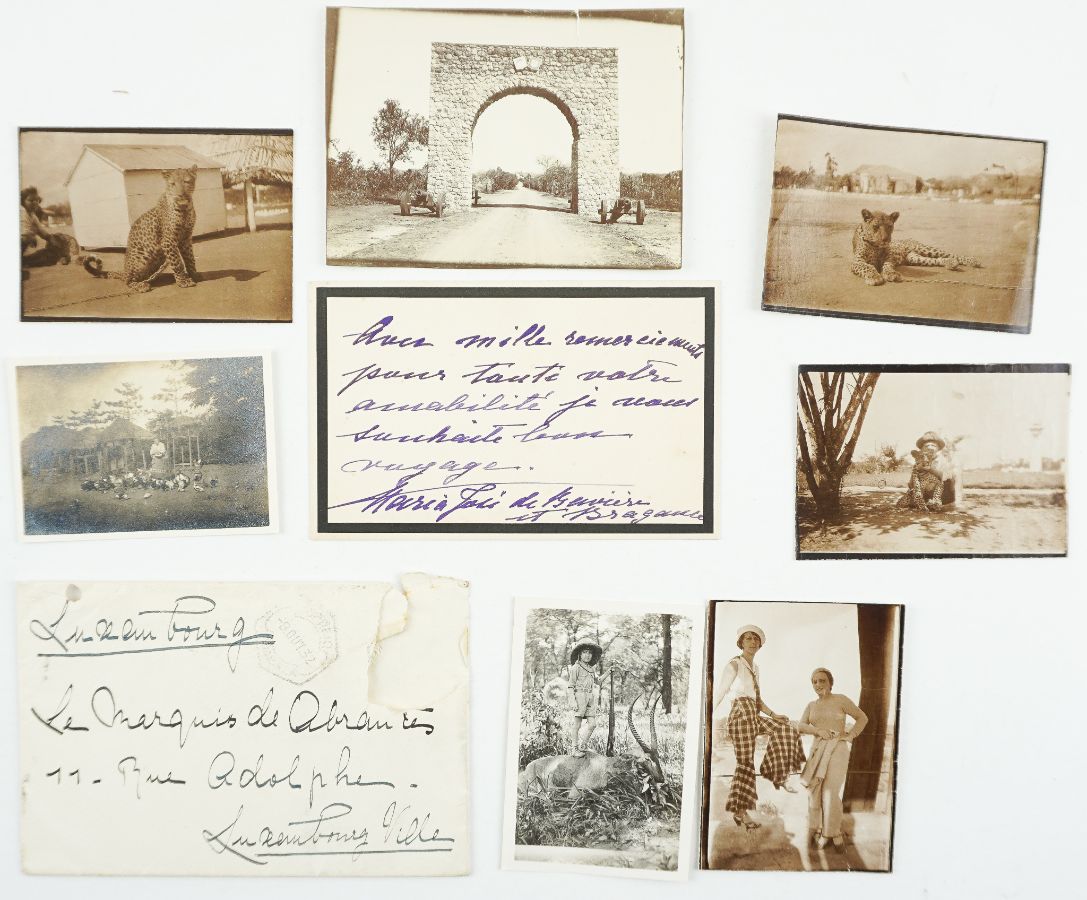 Avec mille remerciements
pour toute votre
amabilité je vous
souhaite bon
voyage.
Maria José de Bavière
et Bragance
Luxembourg
Le Marquis de Abrantes
11 - Rue Adolphe -
Luxembourg Ville